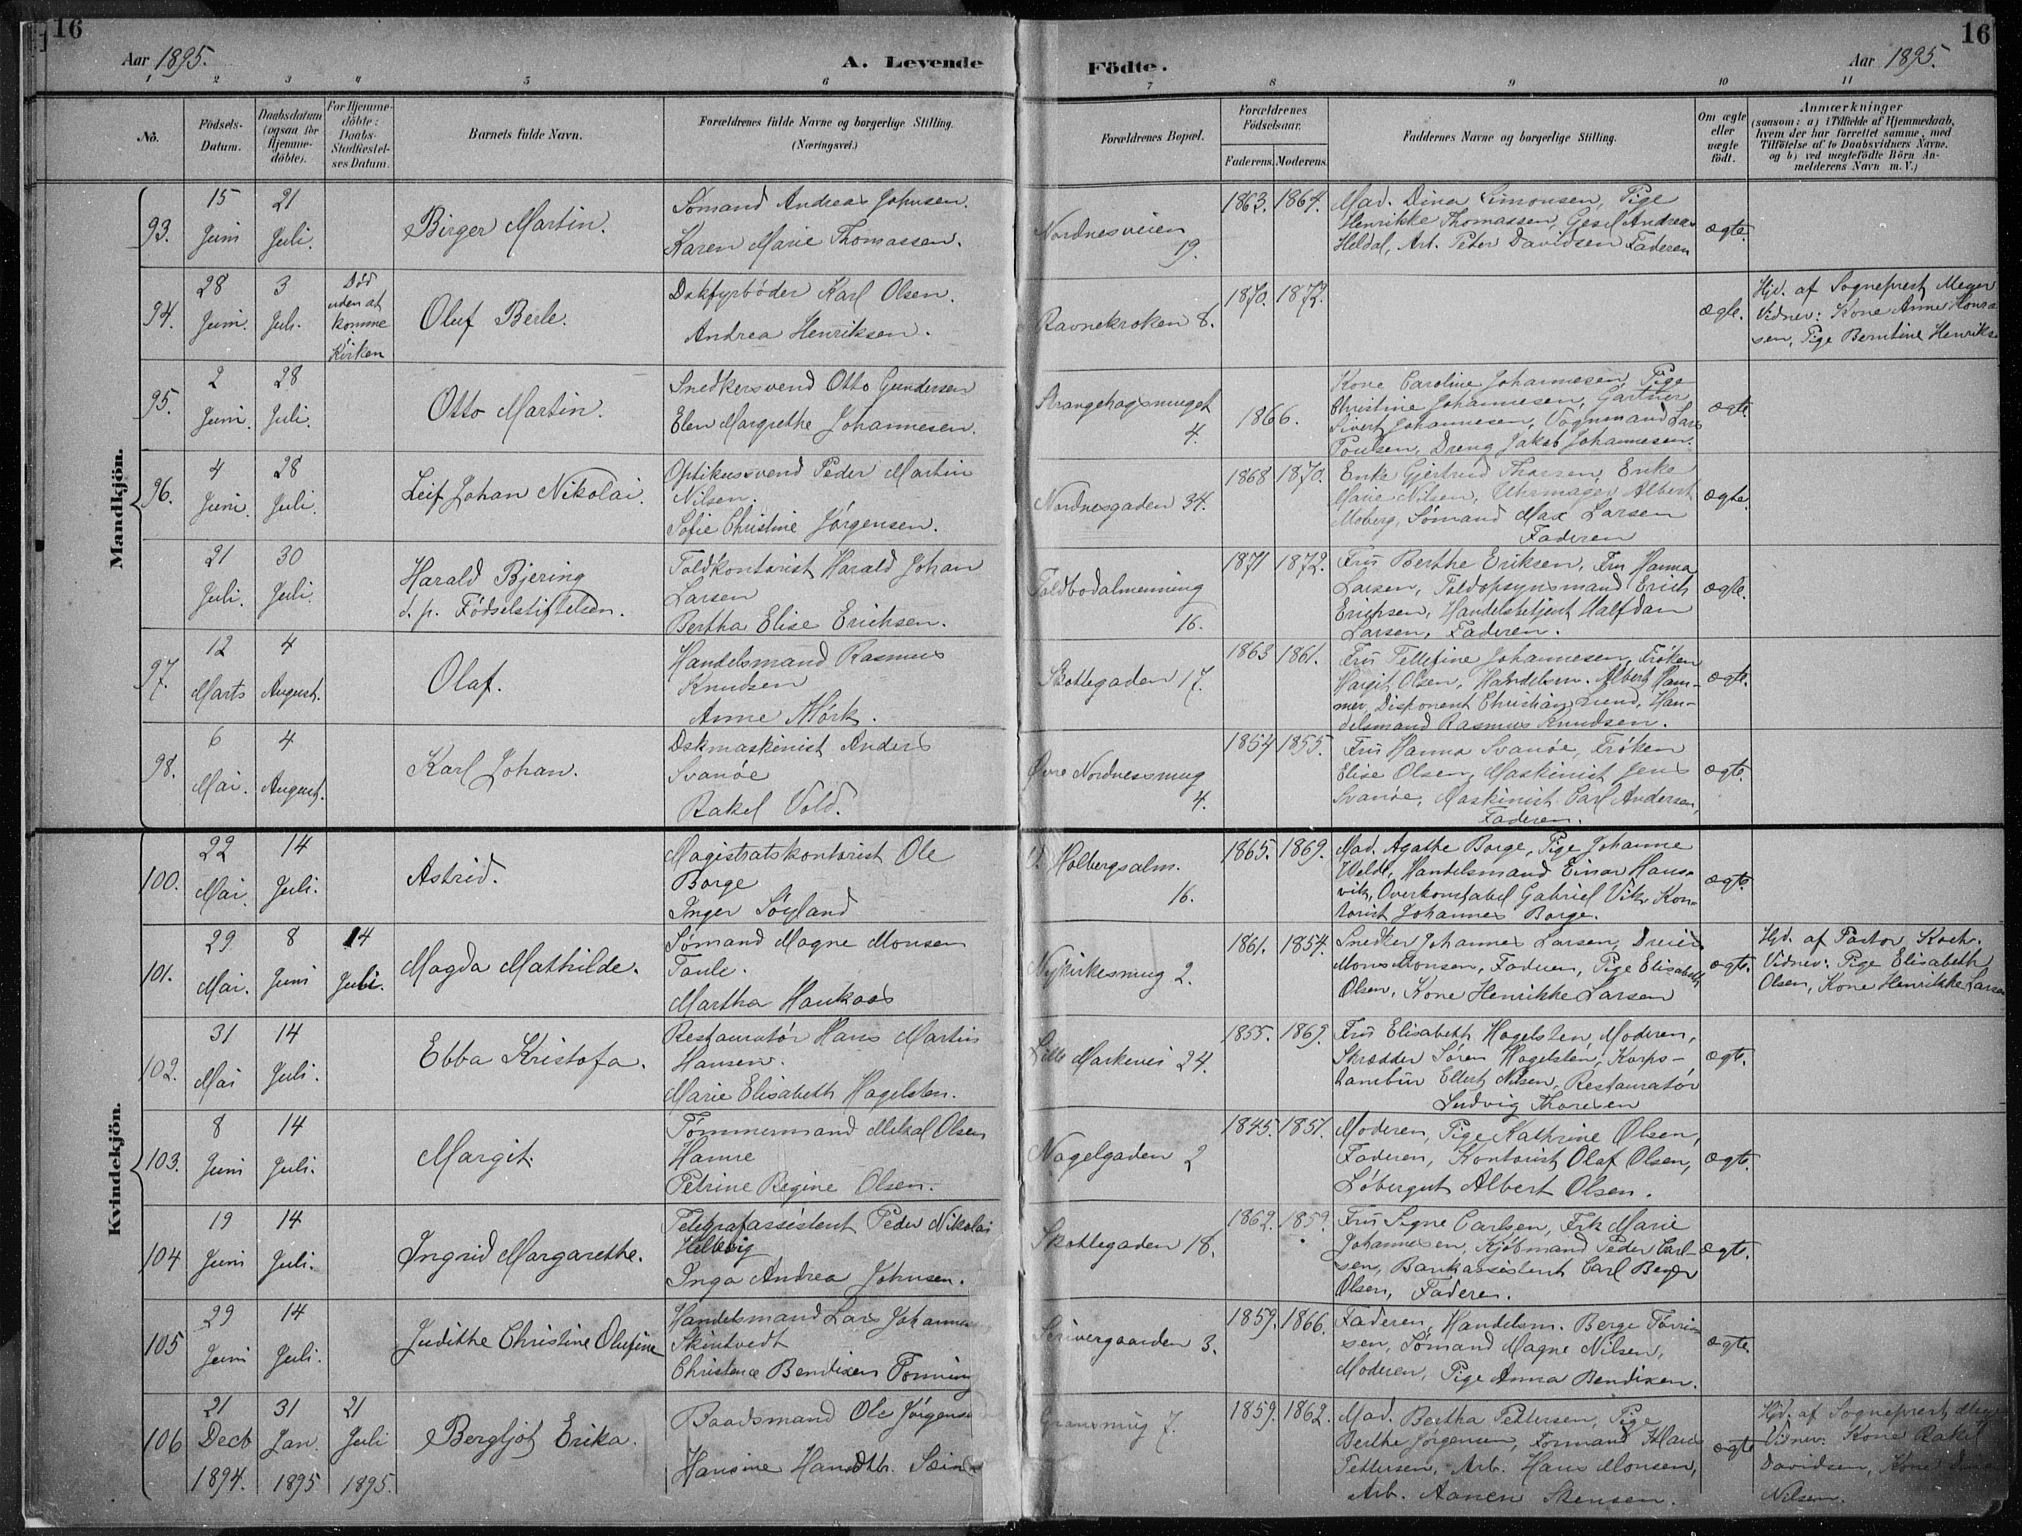 16
16
Aar 1895.
A. Levende Födte.
Aar 1895.
1 2 3 4 5 6 7 8 9 10 11
No.
Födsels-
Datum.
Daabsdatum
(ogsaa for
Hjemme-
döbte).
For Hjemme-
döbte:
Daabs-
Stadfæstel-
ses Datum.
Barnets fulde Navn.
Forældrenes fulde Navne og borgerlige Stilling.
(Næringsvei.)
Forældrenes Bopæl.
Forældrenes
Födselsaar.
Faderens. Moderens.
Faddernes Navne og borgerlige Stilling.
Om ægte
eller
uægte
födt.
Anmærkninger
(saasom: a) i Tilfælde af Hjemmedaab,
hvem der har forrettet samme, med
Tilföielse af to Daabsvidners Navne.
og b) ved uægtefödte Börn An-
melderens Navn m. V.)
Mandkjön.
93.
15
Juni
21
Juli.
Birger Martin.
Sømand Andreas Johnsen.
Karen Marie Thomassen.
Nordnesveien
19.
1863. 1864.
Mad. Dina Simonsen, Pige
Henrikke Thomassen, Gesel Andreas
Heldal, Arb. Peter Davidsen Faderen
ægte.
94.
28
Juni.
3
Juli.
Død
uden at
komme
i Kirken
Oluf Berle.
Dskfyrbøder Karl Olsen.
Andrea Henriksen.
Ravnekroken 8.
1870. 1872.
ægte.
Hjd. af Sogneprest Meyer
Vidner: Kone Anne Konra
sen, Pige Berntine Henriks
95.
2
Juni.
28
Juli.
Otto Martin.
Snedkersvend Otto Gundersen
Elen Margrethe Johannesen.
Strangehagsmuget
4.
1866.
Kone Caroline Johannesen, Pige
Christine Johannesen, Gartner
Sivert Johannesen, Vognmand Lars
Poulsen, Dreng Jakob Johannesen.
ægte.
96.
4
Juni.
28
Juli.
Leif Johan Nikolai.
Optikussvend Peder Martin
Nilsen.
Sofie Christine Jørgensen.
Nordnesgaden 34.
1868 1870.
Enke Gjertrud Thassen, Enke
Marie Nilsen, Uhrmager Albert
Moberg, Sømand Max Larsen
Faderen
ægte.
21
Juli.
30
Juli.
Harald Bjering
d. p. Fødselstiftelsen.
Toldkontorist Harald Johan
Larsen
Bertha Elise Erichsen.
Toldbodalmenning
16.
1871 1872.
Fru Berthe Eriksen, Fru Hanna
Larsen, Toldopsynsmand Erich
Erichsen, Handelsbetjent Halfdan
Larsen, Faderen.
ægte.
97.
12
Marts
4
August.
Olaf.
Handelsmand Rasmus
Knudsen
Anne Mørk.
Skottegaden 17.
1863 1861.
Fru Tellefine Johannesen, Frøken
Margit Olsen, Handelsm. Albert Ham-
mer, Disponent Christian Lund, Han-
delsmand Rasmus Knudsen.
ægte.
98.
6
Mai.
4
August.
Karl Johan.
Dskmaskinist Anders
Svanøe
Rakel Vold.
Øvre Nordnessmug
4.
1854 1855.
Fru Hanna Svanøe, Frøken
Elise Olsen, Maskinist Jens
Svanøe, Maskinist Carl Andersen,
Faderen.
ægte.
Kvindekjön.
100.
22
Mai.
14
Juli.
Astrid.
Magistratskontorist Ole
Borge
Inger Søyland
Holbergsalm.
16.
1865. 1869.
Mad. Agathe Borge, Pige Johanne
Welde, Handelsmand Einar Haus-
vik, Overkonstabel Gabriel Vik, Kon-
torist Johannes Borge.
ægte.
101.
29
Mai.
8
Juni
14
Juli.
Magda Mathilde.
Sømand Magne Monsen
Taule.
Martha Haukaas
Nykirkesmug 2.
1861. 1854.
Snedker Johannes Larsen, Dreier
Mons Monsen, Faderen, Pige Elisabeth
Olsen, Kone Henrikke Larsen
ægte.
Hjd. af Pastor Koch.
Vidner: Pige Elisabeth
Olsen, Kone Henrikke Larsen
102.
31
Mai
14
Juli.
Ebba Kristofa.
Restauratør Hans Martin
Hansen.
Marie Elisabeth Hagelsten.
Lille Markevei 24.
1855. 1869.
Fru Elisabeth Hagelsten, Moderen,
Skrædder Søren Hagelsten, Korps-
tambur Ellert Nilsen, Restauratør
Ludvig Thoresen
ægte.
103.
8
Juni
14
Juli.
Margit.
Tømmermand Mikal Olsen
Hamre
Petrine Regine Olsen.
Nagelgaden 2
1845. 1851.
Moderen, Pige Kathrine Olsen,
Faderen, Kontorist Olaf Olsen,
Løbergut Albert Olsen.
ægte.
104
19
Juni
14
Juli.
Ingrid Margarethe.
Telegrafassistent Peder Nikolai
Helberg
Inga Andrea Johnsen.
Skottegaden 18.
1862. 1859.
Fru Signe Carlsen, Frk Marie
Johannesen, Kjøbmand Peder Carl-
sen, Bankassistent Carl Berge
Olsen, Faderen.
ægte.
105
29
Juni
14
Juli.
Judithe Christine Olufine
Handelsmand Lars Johannes
Skintvedt
Christence Bendixen Tonning
Skrivergaarden 3.
1859. 1866.
Faderen, Handelsm. Berge
sen, Sømand Magne Nilsen,
Moderen, Pige Anna Bendixen.
ægte.
106
21
Decb
1894.
31
Jan.
1895
21
Juli
1895.
Bergljot Erika.
Baadsmand Ole Jørgense
Hansine
7.
1859. 1862.
Mad. Bertha Pettersen, Pige
Berthe Jørgensen, Formand Hans
Pettersen, Arb. Hans Monsen,
Arb. Aanen Stensen.
ægte
Hjd. af Sogneprest Meyer
Vidner: Kone Rakel
Davidsen, Kone
Nilsen.